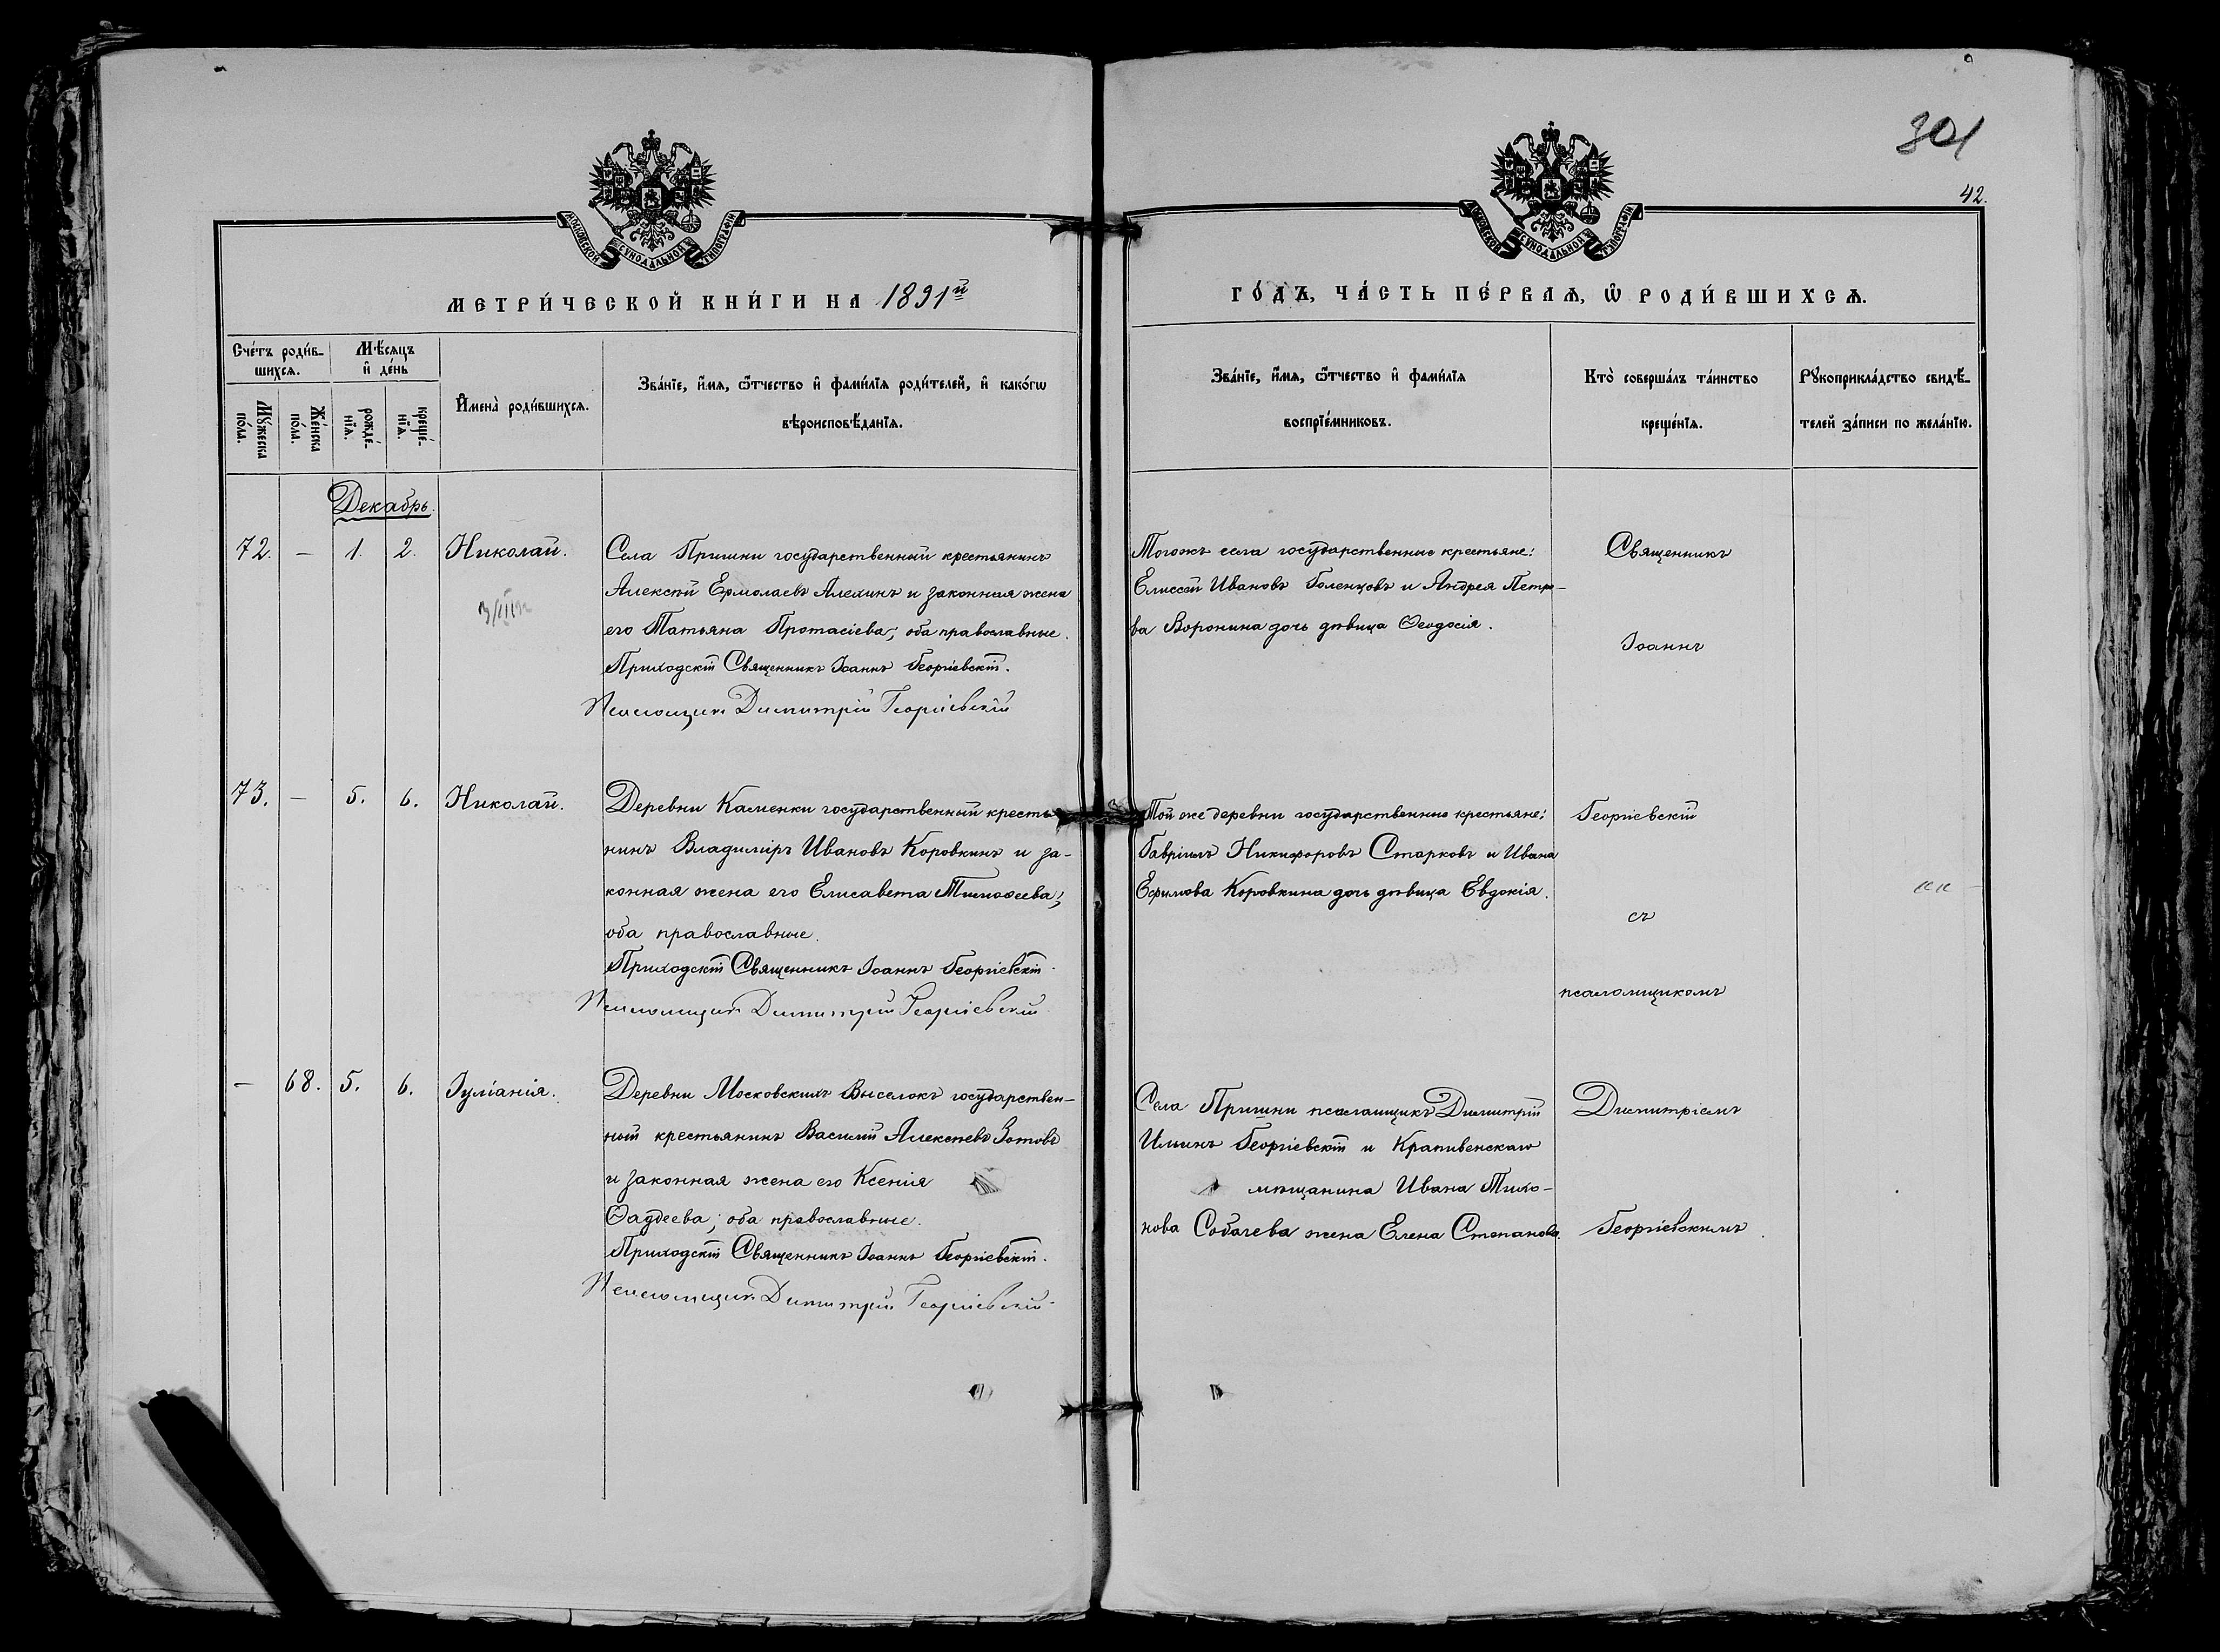 301
42.
МОСКОВСКОЙ СѴНОДАЛЬНОЙ ТИПОГРАФІИ
МОСКОВСКОЙ СѴНОДАЛЬНОЙ ТИПОГРАФІИ
МЕТРИ́ЧЕСКОЙ КНИ́ГИ НА 1891й
ГО́ДЪ, ЧА́СТЬ ПЕ́РВАѦ, Ѡ҆ РОДИ́ВШИХСѦ.
Сче́тъ роди́в-
шихсѧ.
Мѣ́сѧцъ
и҆ де́нь
Мꙋ́жеска
по́ла.
Же́нска
по́ла.
рожде́-
нїѧ.
креще́-
нїѧ.
И҆мена̀ роди́вшихсѧ.
Зва́нїе, и҆́мѧ, ѻ҆́тчество и҆ фами́лїѧ роди́телей, и҆ како́гѡ
вѣроисповѣ́данїѧ.
Зва́нїе, и҆́мѧ, ѻ҆́тчество и҆ фами́лїѧ
воспрїе́мниковъ.
Кто̀ соверша́лъ та́инство
креще́нїѧ.
Рꙋкоприкла́дство свидѣ́-
телей за́писи по жела́нїю.
Декабрь.
72. — 1. 2. Николай.
Села Пришни государственный крестьянинъ
Алексѣй Ермолаевъ Алехинъ и законная жена
его Татьяна Протасіева; оба православные.
Приходскій Священникъ Іоаннъ Георгіевскій.
Псаломщикъ Димитрій Георгіевскій
Тогожъ села государственные крестьяне:
Елиссей Ивановъ Голенцовъ и Андрея Петро-
ва Воронина дочь дѣвица Ѳеодосія.
Священникъ
Іоаннъ
73. — 5. 6. Николай.
Деревни Каменки государственный крестья
нинъ Владиміръ Ивановъ Коровкинъ и за-
конная жена его Елисавета Тимоѳеева;
оба православные.
Приходскій Священникъ Іоаннъ Георгіевскій.
Псаломщикъ Димитрій Георгіевскій
Той же деревни государственные крестьяне:
Гавріилъ Никифоровъ Старковъ и Ивана
Ефимова Коровкина дочь дѣвица Евдокія.
Георгіевскій
съ
псаломщикомъ
— 68. 5. 6. Іуліанія.
Деревни Московскихъ Выселокъ государствен-
ный крестьянинъ Василій Алексѣевъ Зотовъ
и законная жена его Ксенія
Ѳаддеева; оба православные.
Приходскій Священникъ Іоаннъ Георгіевскій.
Псаломщикъ Димитрій Георгіевскій.
Села Пришни псаломщикъ Димитрій
Ильинъ Георгіевскій и Крапивенскаго
мѣщанина Ивана Тихо-
нова Собачева жена Елена Степанова.
Димитріемъ
Георгіевскимъ.